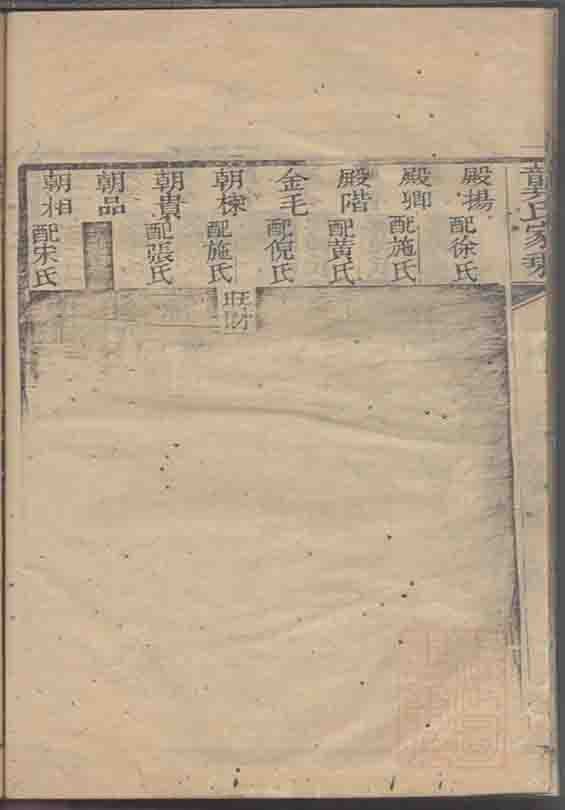 章氏家乘
殿揚 配徐氏
殿卿 配施氏
殿階 配黃氏
金毛 配倪氏
朝棟 配施氏
旺財
朝貴 配張氏
朝品
朝相 配宋氏